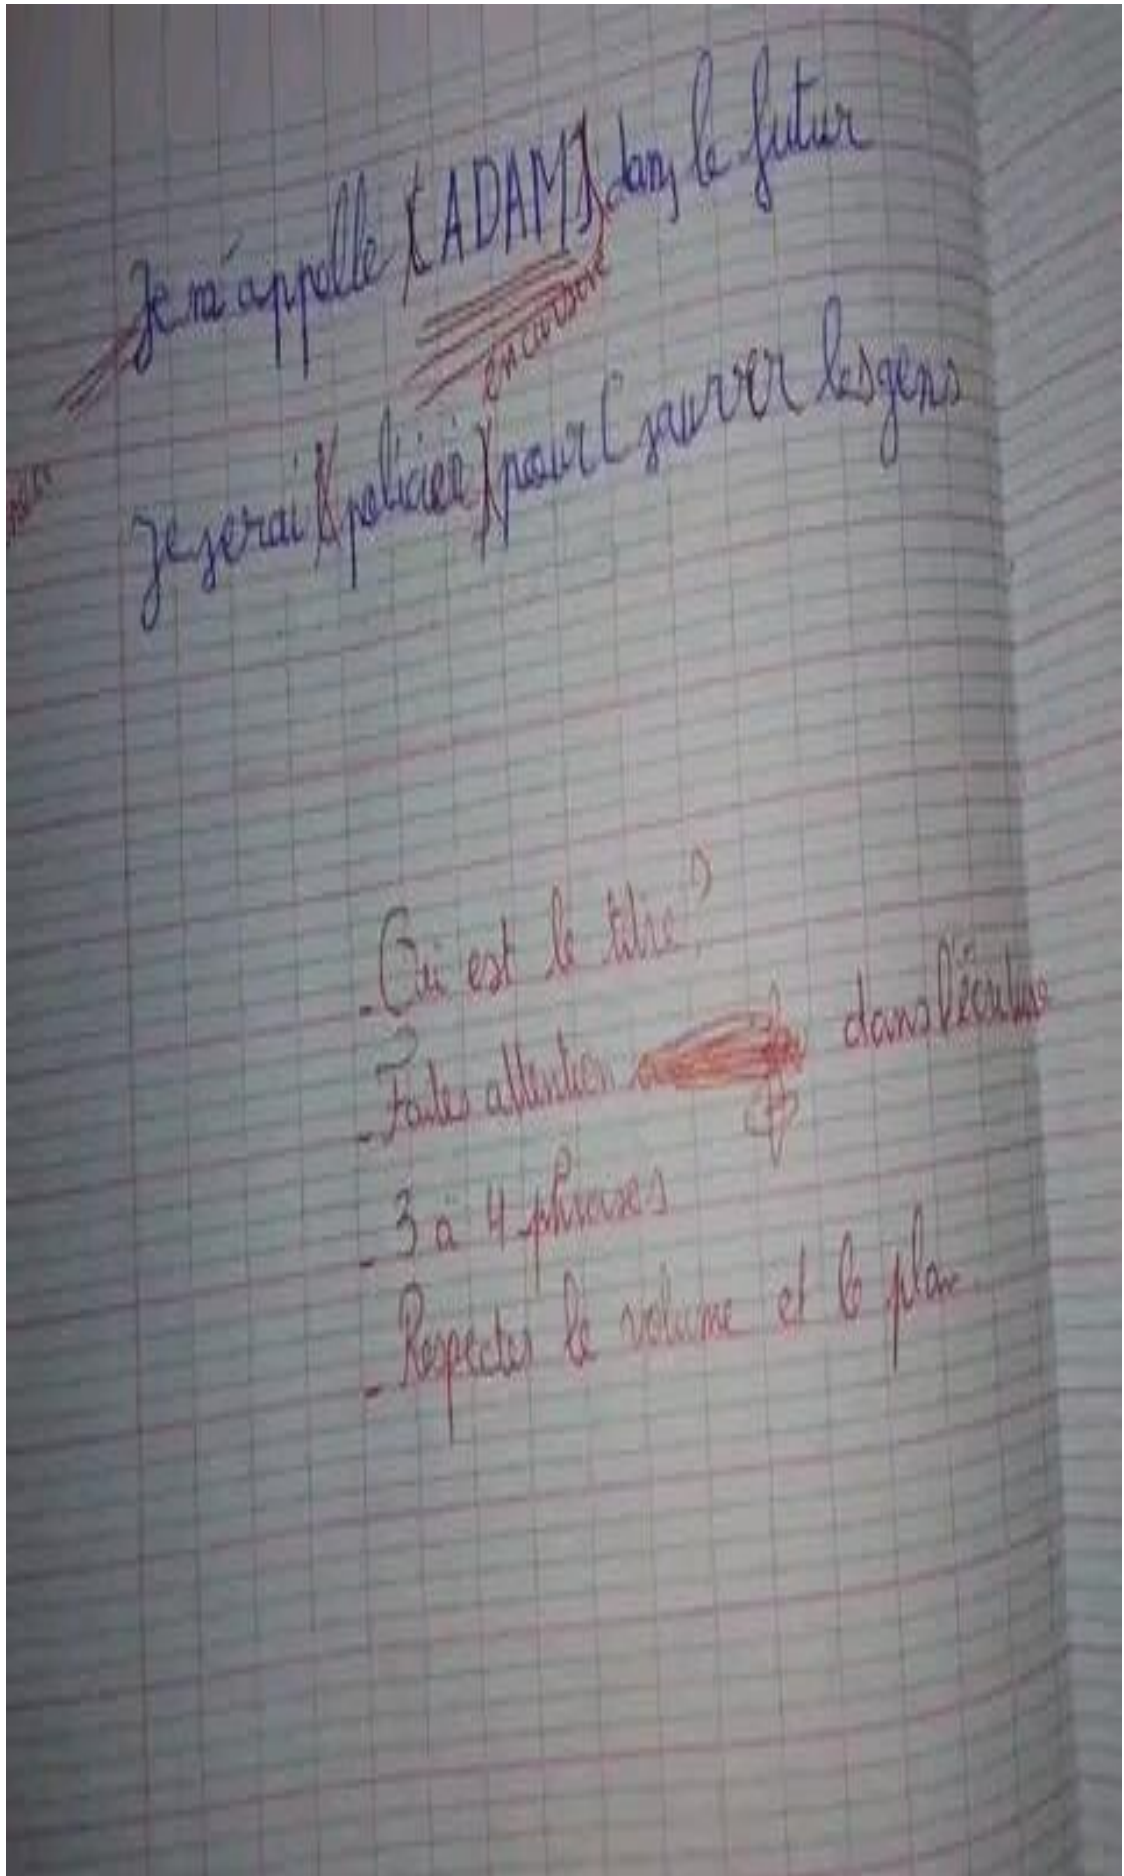 Je m'appelle (ADAM) dans le futur
en cursive
Je serai (policier) pour (sauver les gens
- Où est le titre?
- Faites attention dans l'écriture
- 3 à 4 phrases
- Respectes le volume et le plan